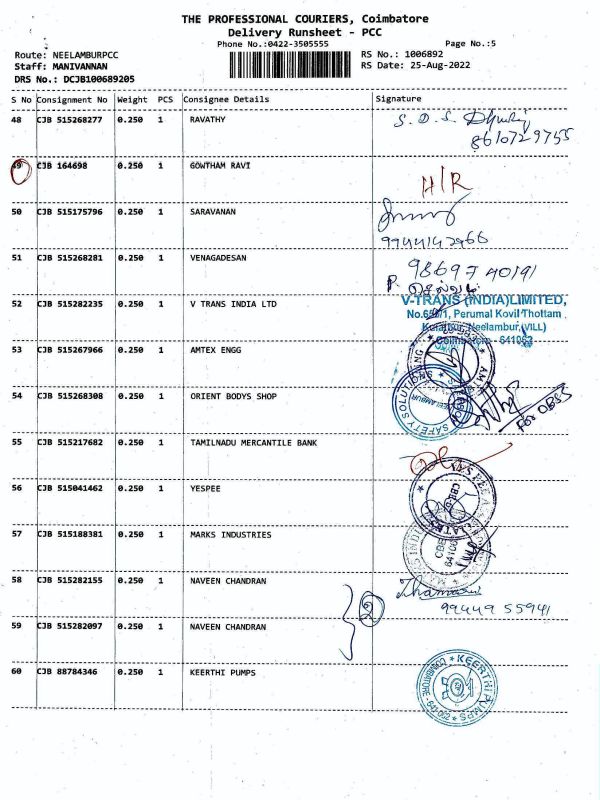 THE PROFESSIONAL COURIERS, Coimbatore
Delivery Runsheet - PCC
Phone No.:0422-3505555
Page No.:5
Route: NEELAMBURPCC
RS No.: 1006892
Staff: MANIVANNAN
RS Date: 25-Aug-2022
DRS No.: DCJB100689205
S No Consignment No Weight PCS Consignee Details Signature
48 CJB 515268277 0.250 1 RAVATHY
8610729755
49 CJB 164698 0.250 1 GOWTHAM RAVI
H/R
50 CJB 515175796 0.250 1 SARAVANAN
51 CJB 515268281 0.250 1 VENAGADESAN
52 CJB 515282235 0.250 1 V TRANS INDIA LTD
V-TRANS (INDIA) LIMITED,
Perumal Kovil Thottam
Neelambur (VILL)
Coimbatore - 641062
53 CJB 515267966 0.250 1 AMTEX ENGG
54 CJB 515268308 0.250 1 ORIENT BODYS SHOP
SAFETY SOLUTIONS
For OBSS
55 CJB 515217682 0.250 1 TAMILNADU MERCANTILE BANK
56 CJB 515041462 0.250 1 YESPEE
57 CJB 515188381 0.250 1 MARKS INDUSTRIES
58 CJB 515282155 0.250 1 NAVEEN CHANDRAN
2
99449 55941
59 CJB 515282097 0.250 1 NAVEEN CHANDRAN
60 CJB 88784346 0.250 1 KEERTHI PUMPS
KEERTHI PUMPS
COIMBATORE - 641 062